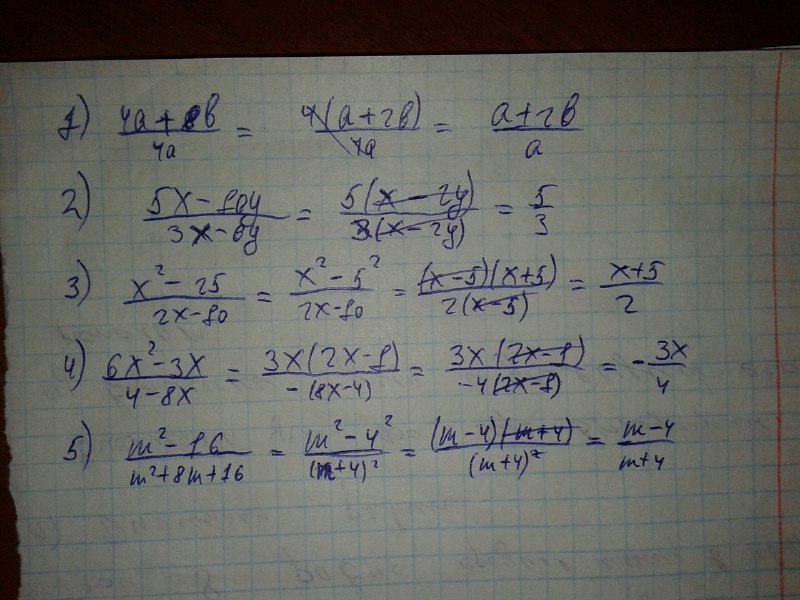 1) (4a+8b)/4a = 4(a+2b)/4a = (a+2b)/a
2) (5x-10y)/(3x-6y) = 5(x-2y)/3(x-2y) = 5/3
3) (x²-25)/(2x-10) = (x²-5²)/(2x-10) = (x-5)(x+5)/2(x-5) = (x+5)/2
4) (6x²-3x)/(4-8x) = 3x(2x-1)/-(8x-4) = 3x(2x-1)/-4(2x-1) = -3x/4
5) (m²-16)/(m²+8m+16) = (m²-4²)/(m+4)² = (m-4)(m+4)/(m+4)² = (m-4)/(m+4)